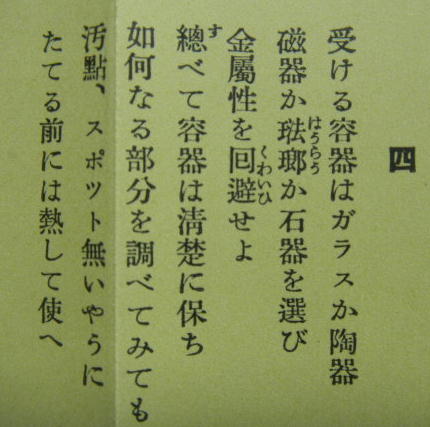 四
受ける容器はガラスか陶器
磁器か琺瑯か石器を選び
金屬性を囘避せよ
總べて容器は淸楚に保ち
如何なる部分を調べてみても
汚點、スポツト無いやうに
たてる前には熱して使へ
はうらう
くわいひ
す